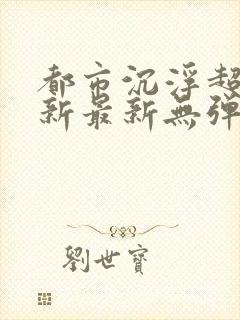 都市沉浮超
新最新無彈
劉世寶